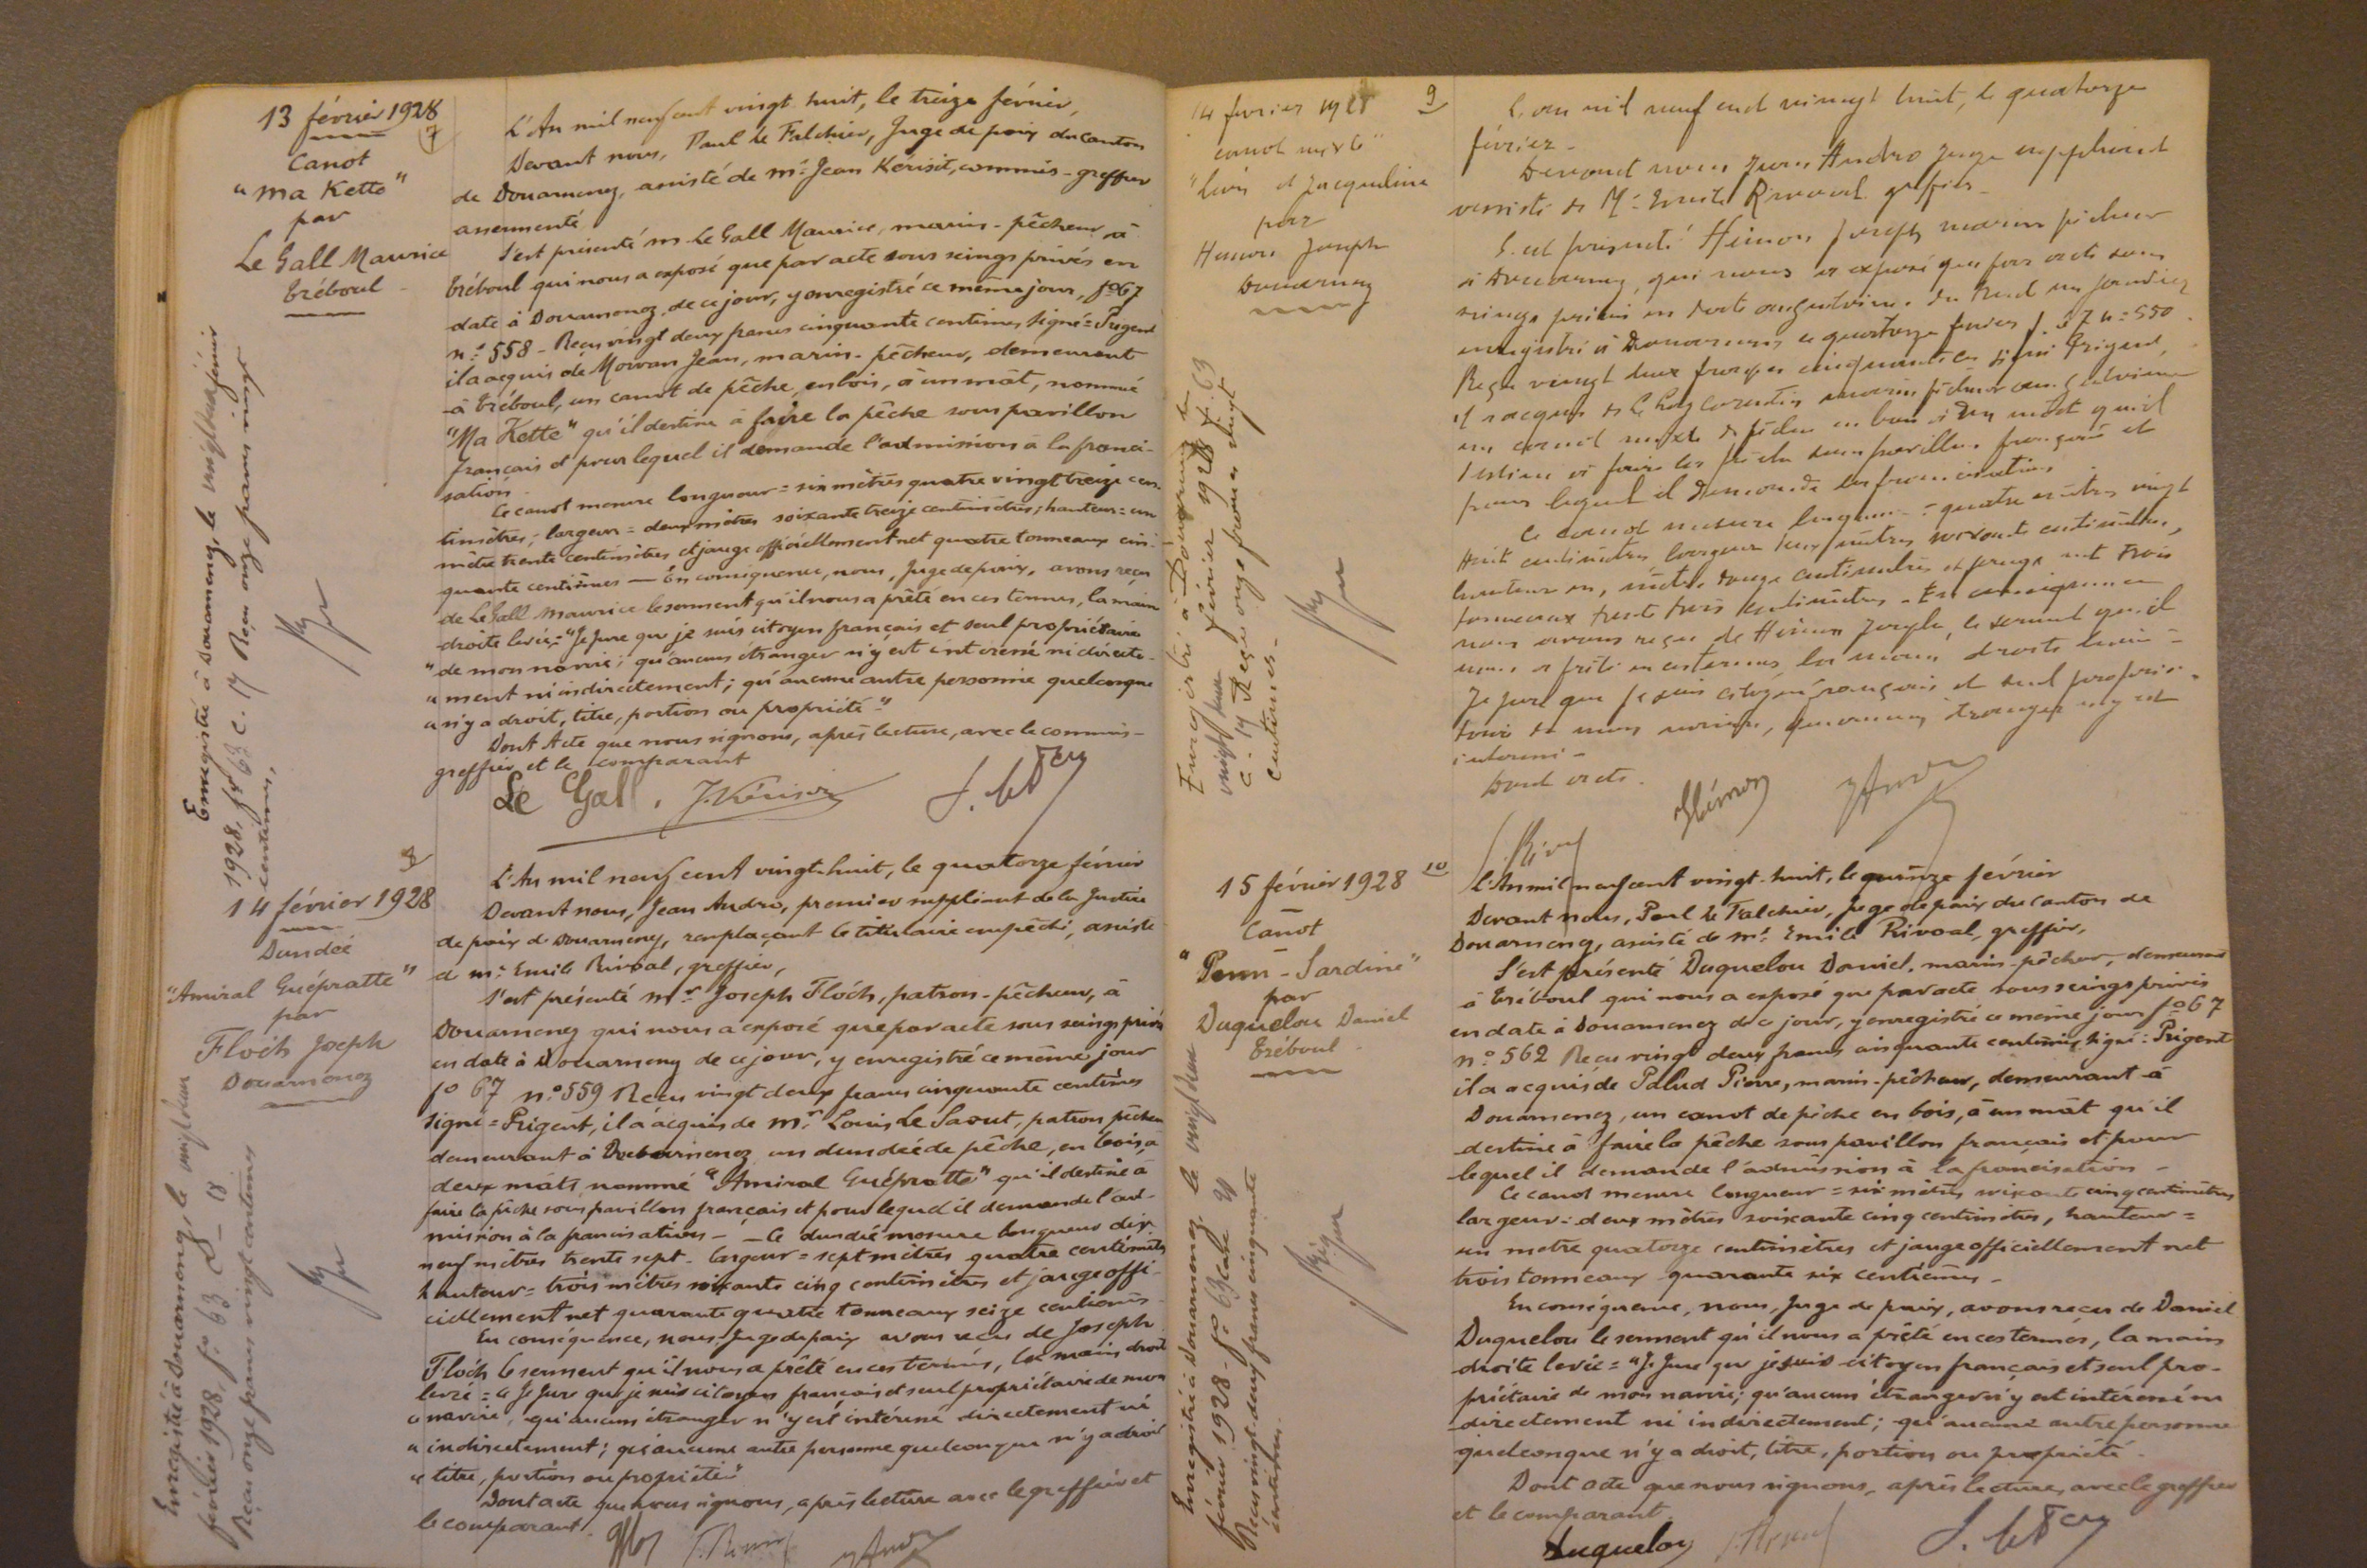 13 février 1928
7
Canot
"Ma Kette"
par
Le Gall Maurice
Tréboul
L'An mil neuf cent vingt huit, le treize février,
Devant nous, Paul Le Falchier, Juge de paix du canton
de Douarnenez, assisté de Mr Jean Kérisit, commis-greffier
assermenté
S'est présenté M. Le Gall Maurice, marin-pêcheur à
Tréboul qui nous a exposé que par acte sous seings privés en
date à Douarnenez, de ce jour, y enregistré ce même jour, fo 67
no 558 - Reçu vingt deux francs cinquante centimes signé = Prigent
il a acquis de Morvan Jean, marin-pêcheur, demeurant
à Tréboul, un canot de pêche, en bois, à un mât, nommé
"Ma Kette" qu'il destine à faire la pêche sous pavillon
français et pour lequel il demande l'admission à la franci-
sation.
Ce canot mesure longueur = six mètres quatre vingt treize cen-
timètres; largeur = deux mètres soixante treize centimètres; hauteur = un
mètre trente centimètres et jauge officiellement net quatre tonneaux cin-
quante centièmes — En conséquence, nous, Juge de paix, avons reçu
de Le Gall Maurice le serment qu'il nous a prêté en ces termes, la main
droite levée = "Je jure que je suis citoyen français et seul propriétaire
"de mon navire; qu'aucun étranger n'y est intéressé ni directe-
"ment ni indirectement; qu'aucune autre personne quelconque
"n'y a droit, titre, portion ou propriété"
Dont Acte que nous signons, après lecture, avec le commis-
greffier et le comparant
Le Gall. J. Kérisit
Enregistré à Douarnenez, le vingt deux février
1928, fo 63 C. 17 Reçu onze francs vingt
centimes,
8
14 février 1928
Dundée
"Amiral Guépratte"
par
Floch Joseph
Douarnenez
L'An mil neuf cent vingt-huit, le quatorze février
Devant nous, Jean Andro, premier suppléant de la Justice
de paix de Douarnenez, remplaçant le titulaire empêché, assisté
d Mr Emile Rivoal, greffier,
S'est présenté Mr Joseph Floch, patron-pêcheur, à
Douarnenez qui nous a exposé que par acte sous seings privés
en date à Douarnenez de ce jour, y enregistré ce même jour
fo 67 no 559 Reçu vingt deux francs cinquante centimes
signé = Prigent, il a acquis de Mr Louis Le Saout, patron pêcheur
demeurant à Douarnenez un dundée de pêche, en bois, à
deux mâts, nommé "Amiral Guépratte" qu'il destine à
faire la pêche sous pavillon français et pour lequel il demande l'ad-
mission à la francisation - - Ce dundée mesure longueur dix
neuf mètres trente sept - largeur = sept mètres quatre centimètres
hauteur = trois mètres soixante cinq centimètres et jauge offi-
ciellement net quarante quatre tonneaux seize centièmes
En conséquence, nous Juge de paix avons reçu de Joseph
Floch le serment qu'il nous a prêté en ces termes, la main droite
levée = "Je Jure que je suis citoyen français et seul propriétaire de mon
"navire, qu'aucun étranger n'y est intéressé directement ni
"indirectement; qu'aucune autre personne quelconque n'y a droit
"titre, portion ou propriété"
Dont acte que nous signons, après lecture avec le greffier et
le comparant.
Enregistré à Douarnenez, le vingt deux
février 1928, fo 63 C - 18
Reçu onze francs vingt centimes
14 fevrier 1928
9
canot mixte
"Louis et Jacqueline
par
Hémon Joseph
Douarnenez
L'an mil neuf cent vingt huit, le quatorze
février -
Devant nous Jean Andro Juge suppléant
assisté de Mr Emile Rivoal greffier -
S'est présenté Hémon Joseph marin pêcheur
à Douarnenez, qui nous a exposé que par acte sous
seings privés en date
enregistré à Douarnenez le quatorze fevrier f. 67 n: 550
Reçu vingt deux francs cinquante ces signé Prigent,
il acquis de marin pêcheur
un canot mixte de pêche en bois à un mât qu'il
destine à faire la pêche sous pavillon français et
pour lequel il demande la francisation
Ce canot mesure longueur : quatre mètres vingt
huit centimètres largeur deux mètres soixante centimètres,
hauteur un, mètre douze centimètres et jauge net trois
tonneaux trente trois centimètres - En conséquence
nous avons reçu de Hémon Joseph, le serment qu'il
nous a prêté en ces termes, la main droite levée =
Je jure que je suis citoyen français et seul proprié-
taire de mon navire, qu'aucun étranger n'y est
interessé -
Dont acte.
Hémon
Enregistré à Douarnenez le
vingt deux février 1928 f. 63
c. 19 Reçu onze francs vingt
centimes -
10
15 février 1928
Canot
"Penn-Sardine"
par
Duquelou Daniel
Tréboul
L'An mil neuf cent vingt-huit, le quinze février
Devant nous, Paul Le Falchier, Juge de paix du canton de
Douarnenez, assisté de Mr Emile Rivoal, greffier,
S'est présenté Duquelou Daniel, marin-pêcheur, demeurant
à Tréboul qui nous a exposé que par acte sous seings privés
en date à Douarnenez de ce jour, y enregistré ce même jour fo 67
no 562 Reçu vingt deux francs cinquante centimes signé : Prigent
il a acquis de Palud Pierre, marin-pêcheur, demeurant à
Douarnenez, un canot de pêche en bois, à un mât qu'il
destine à faire la pêche sous pavillon français et pour
lequel il demande l'admission à la francisation -
Ce canot mesure longueur = six mètres soixante cinq centimètres
largeur : deux mètres soixante cinq centimètres, hauteur =
un mètre quatorze centimètres et jauge officiellement net
trois tonneaux quarante six centièmes -
En conséquence, nous, Juge de paix, avons reçu de Daniel
Duquelou le serment qu'il nous a prêté en ces termes, la main
droite levée = "Je Jure que je suis citoyen français et seul pro-
priétaire de mon navire; qu'aucun étranger n'y est intéressé ni
directement ni indirectement; qu'aucune autre personne
quelconque n'y a droit, titre, portion ou propriété.
Dont acte que nous signons, après lecture, avec le greffier
et le comparant.
Duquelou
Enregistré à Douarnenez, le vingt deux
février 1928 - fo 63 case 20
Reçu vingt-deux francs cinquante
centimes.